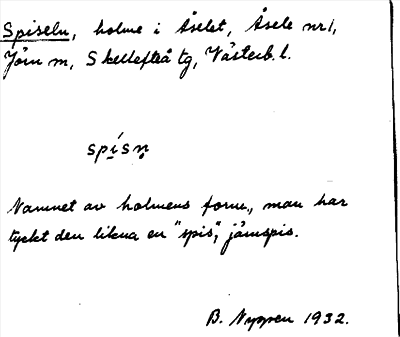 Spiseln, holme i Åselet, Åsele nr 1,
Jörn sn, Skellefteå tg, Västerb. l.
spísn̥
Namnet av holmens form, man har
tyckt den likna en "spis", järnspis.
B. Nyppen 1932.